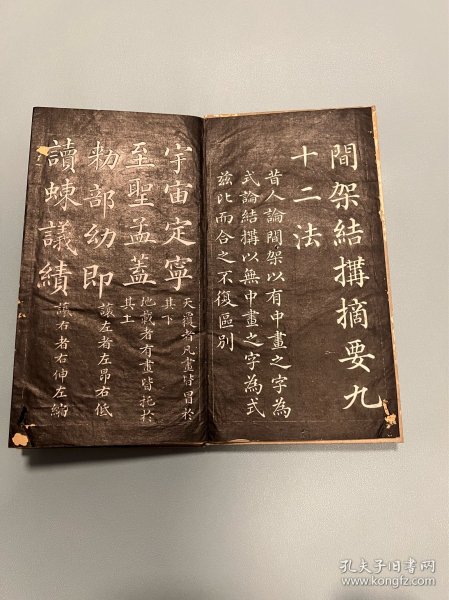 間架結搆摘要九
十二法
昔人論間架以有中畫之字為
式論結搆以無中畫之字為式
茲比而合之不復區別
宇宙定寧
天覆者凡畫皆冒於
其下
至聖孟蓋
地載者有畫皆托於
其上
勑部幼即
讓左者左昂右低
讀蝀議績
讓右者右伸左縮
孔夫子旧书网
www.kongfz.com